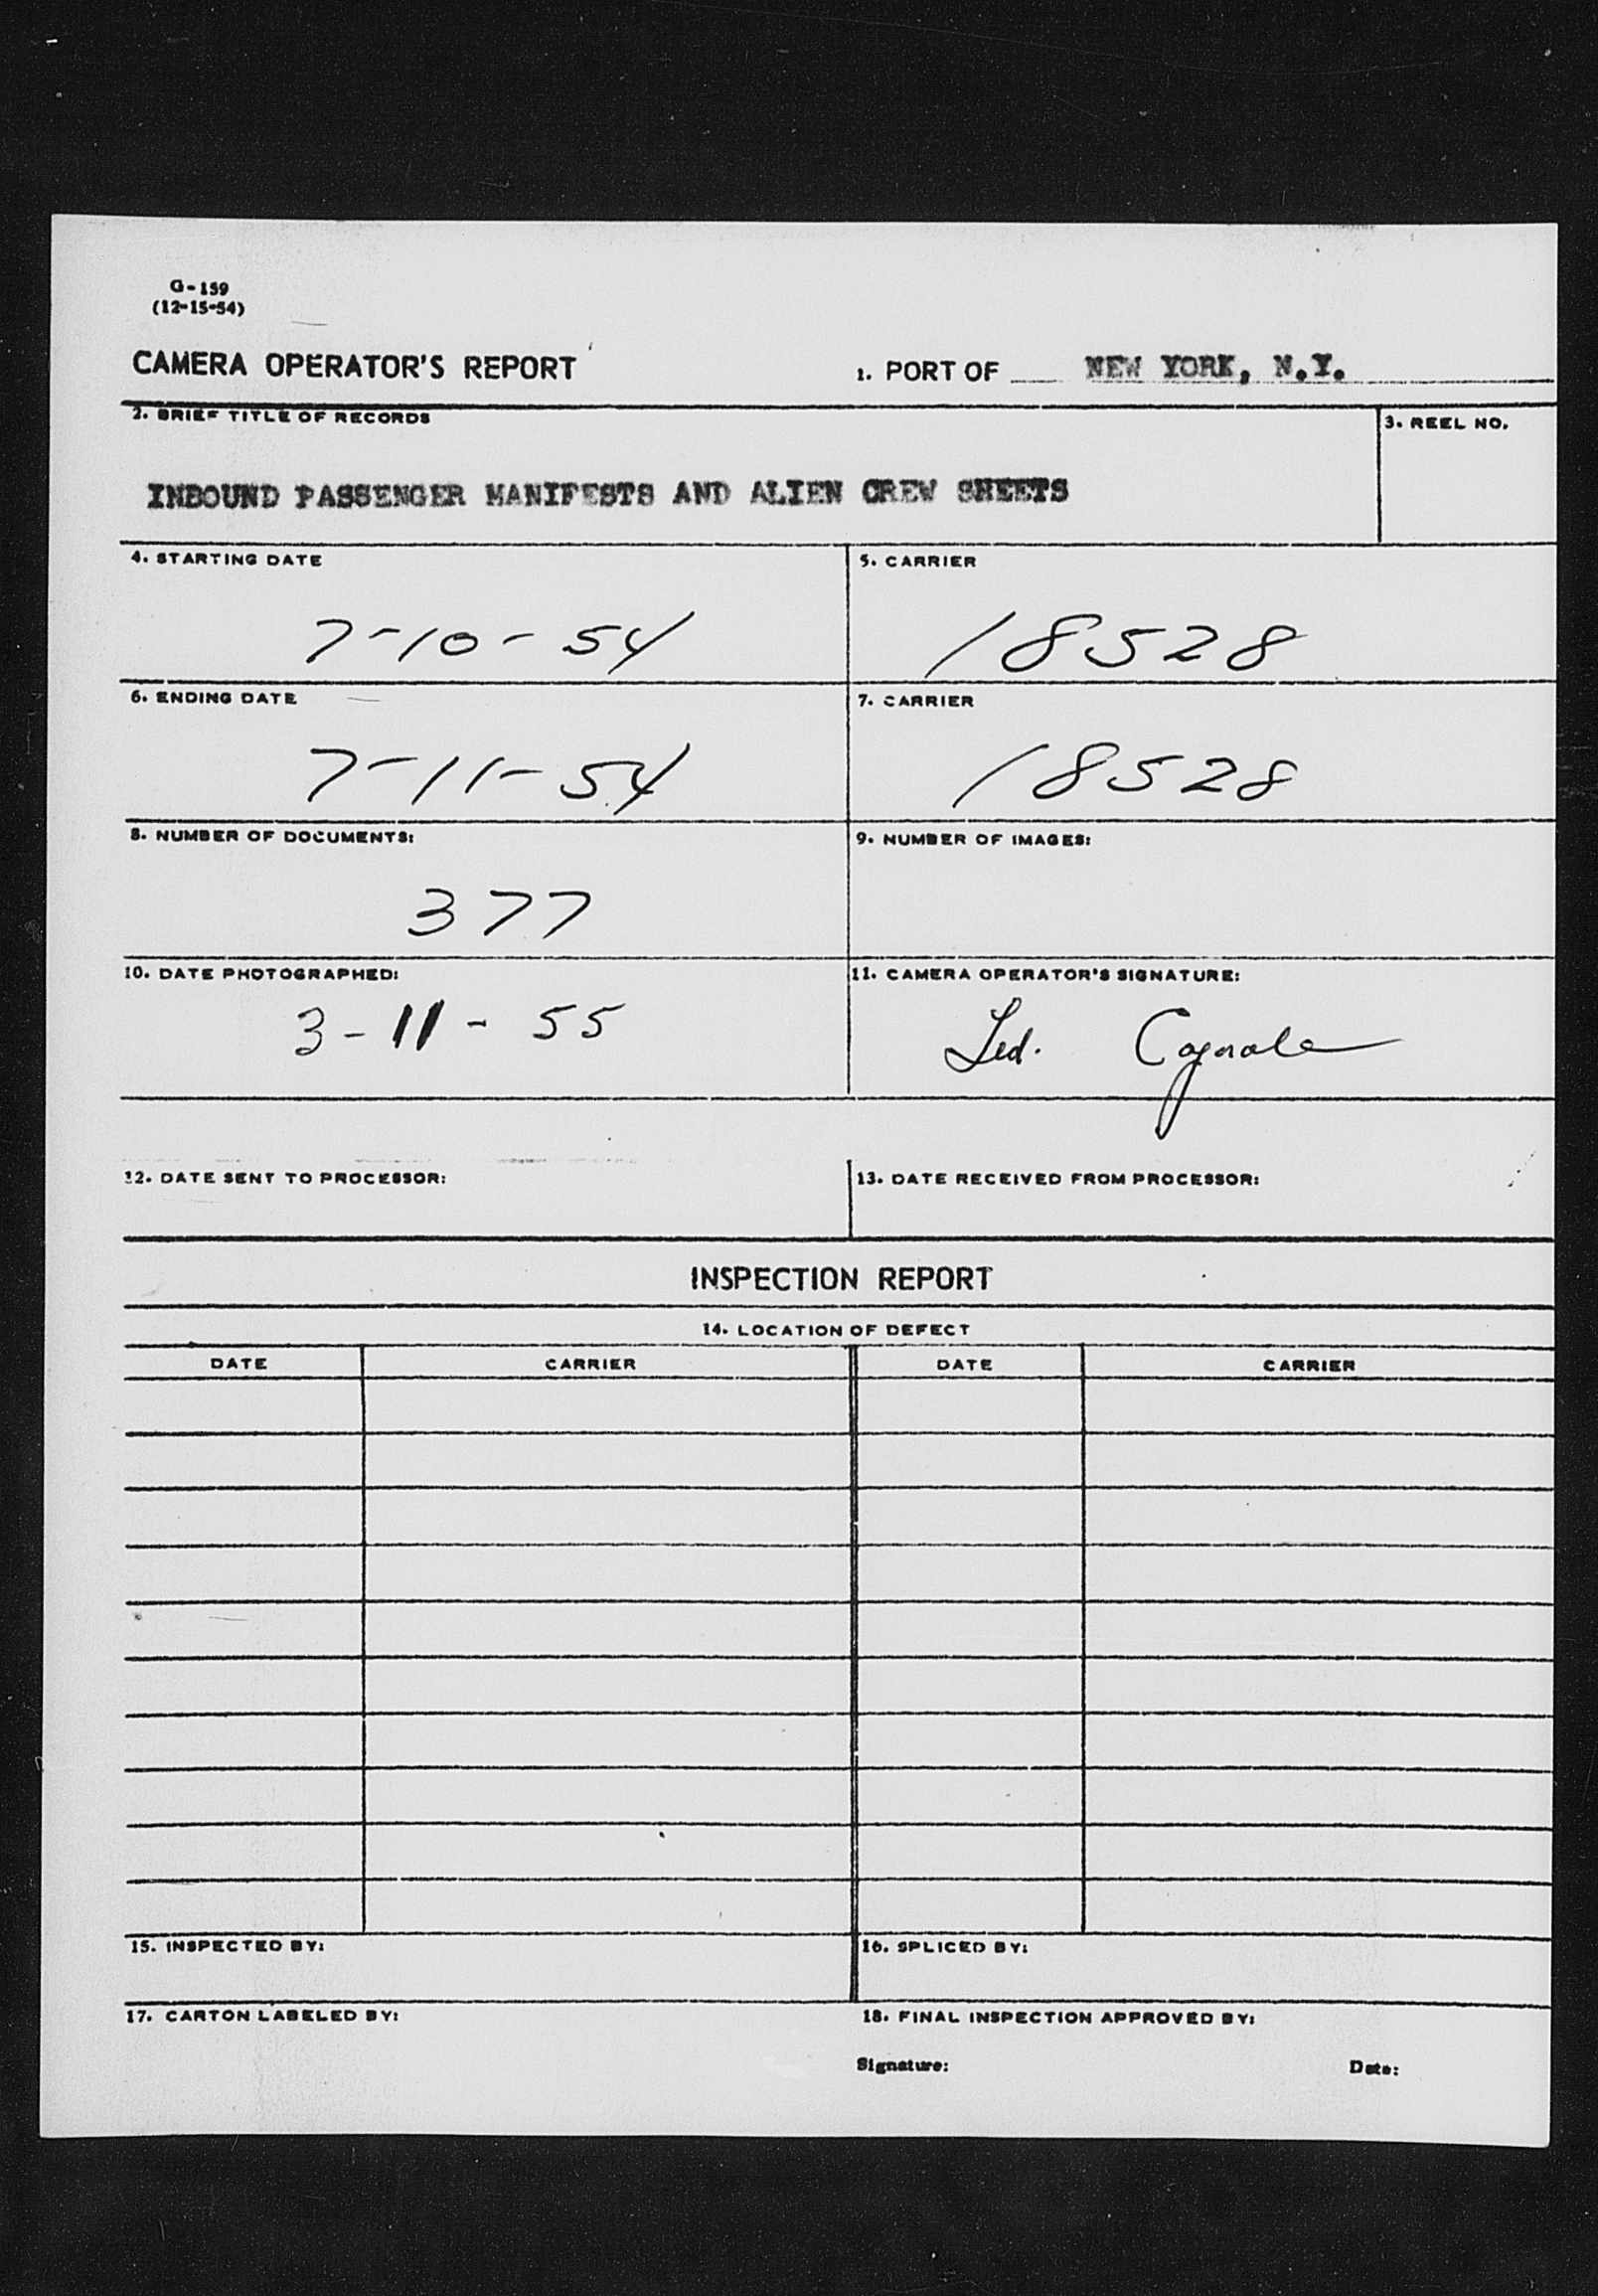 G-159
(12-15-54)
CAMERA OPERATOR'S REPORT
1. PORT OF NEW YORK, N.Y.
2. BRIEF TITLE OF RECORDS
3. REEL NO.
INBOUND PASSENGER MANIFESTS AND ALIEN CREW SHEETS
4. STARTING DATE
5. CARRIER
7-10-54
18528
6. ENDING DATE
7. CARRIER
7-11-54
18528
8. NUMBER OF DOCUMENTS:
9. NUMBER OF IMAGES:
377
10. DATE PHOTOGRAPHED:
11. CAMERA OPERATOR'S SIGNATURE:
3-11-55
12. DATE SENT TO PROCESSOR:
13. DATE RECEIVED FROM PROCESSOR:
INSPECTION REPORT
14. LOCATION OF DEFECT
DATE CARRIER DATE CARRIER
15. INSPECTED BY:
16. SPLICED BY:
17. CARTON LABELED BY:
18. FINAL INSPECTION APPROVED BY:
Signature: Date: